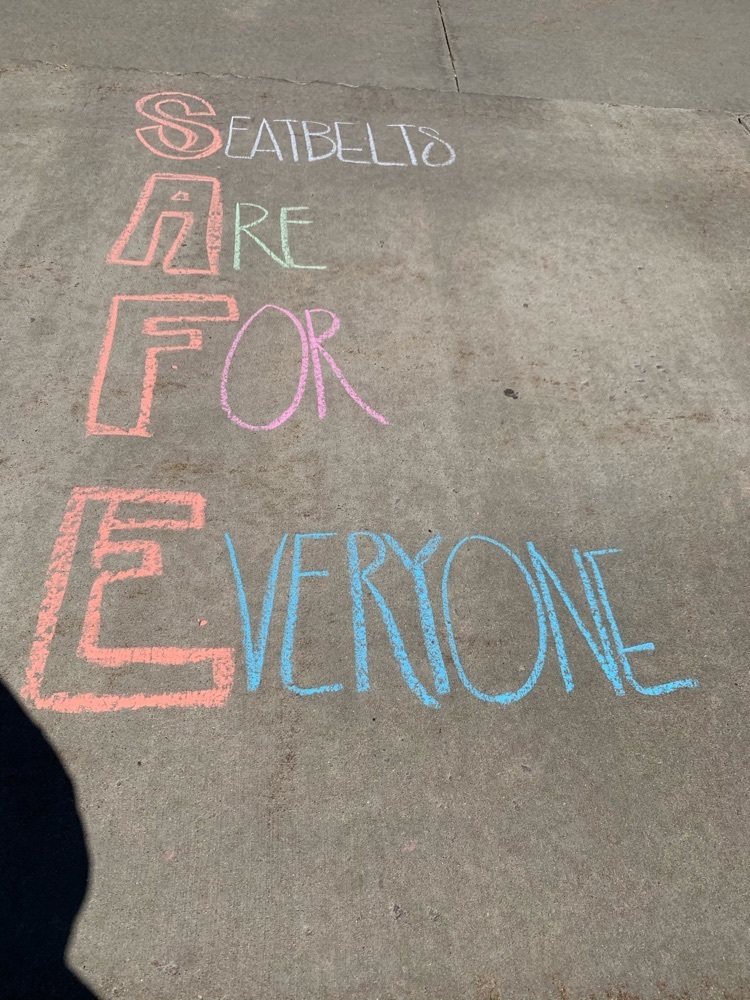 SEATBELTS
ARE
FOR
EVERYONE